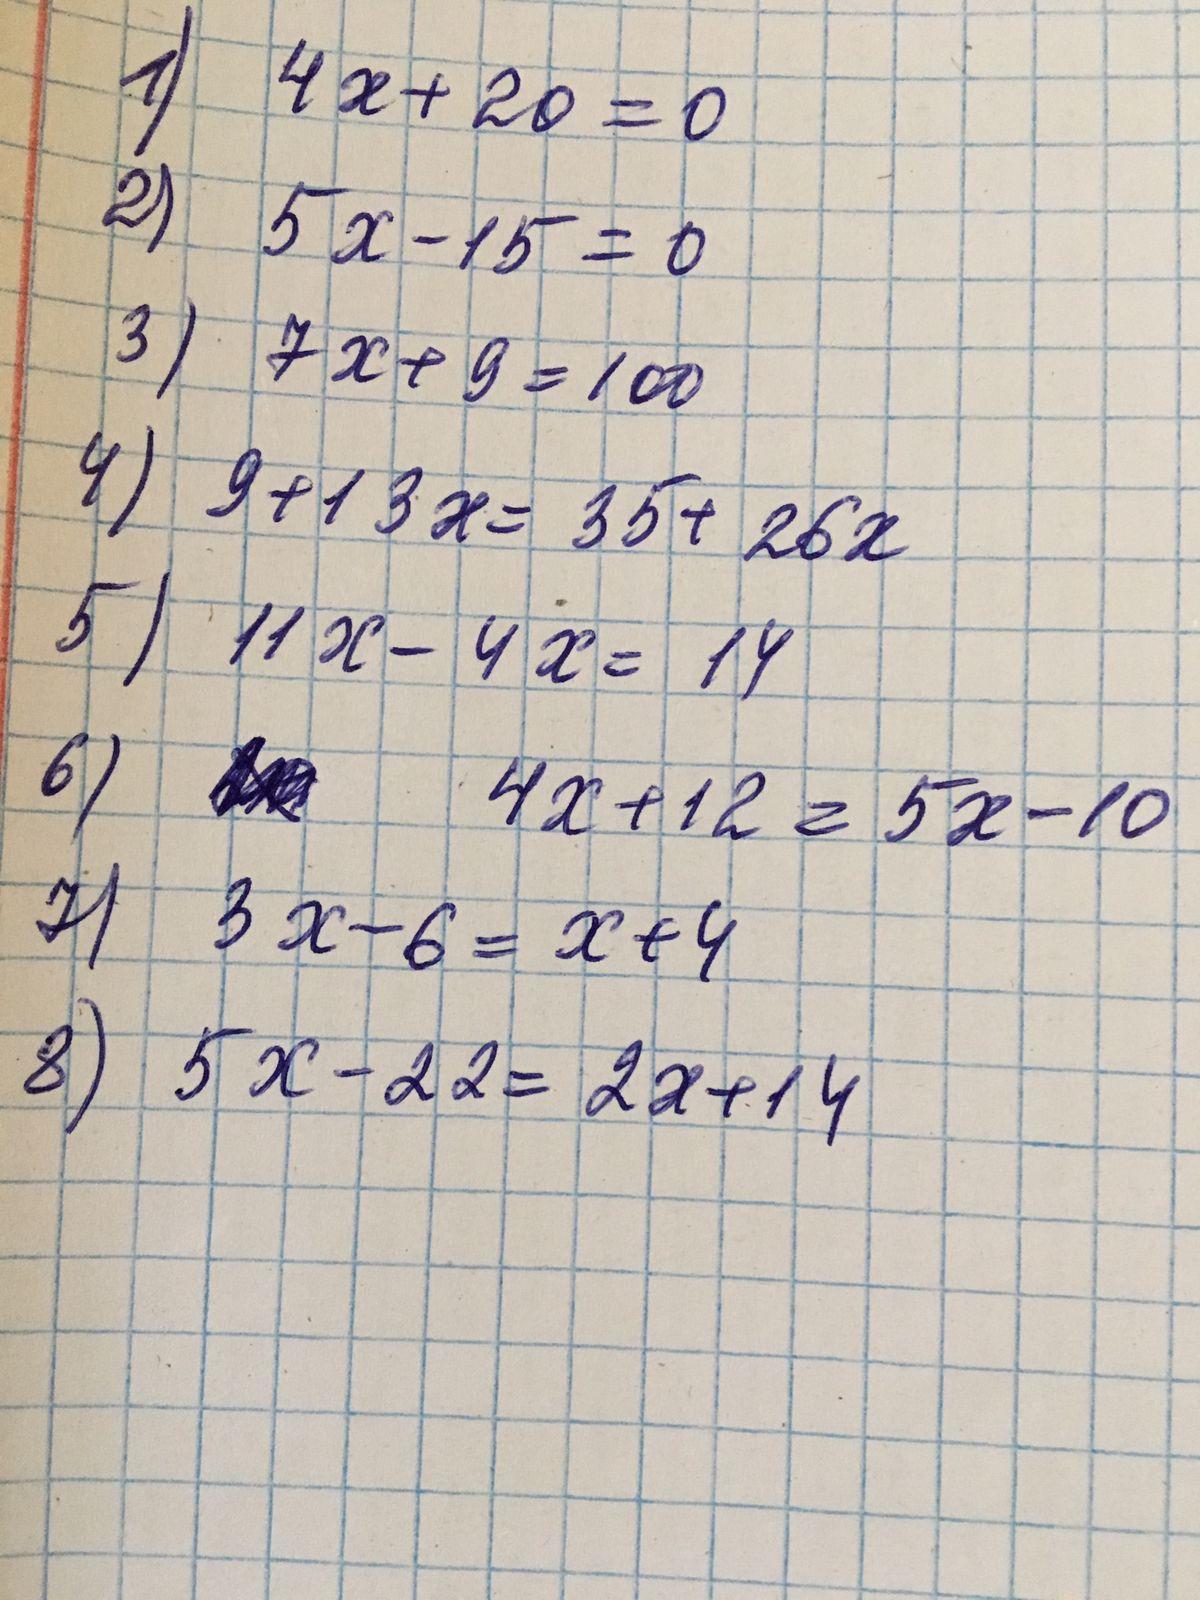 1) 4x + 20 = 0
2) 5x - 15 = 0
3) 7x + 9 = 100
4) 9 + 13x = 35 + 26x
5) 11x - 4x = 14
6) 4x + 12 = 5x - 10
7) 3x - 6 = x + 4
8) 5x - 22 = 2x + 14